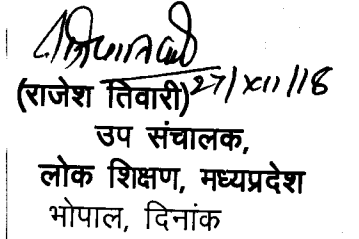 (राजेश तिवारी) 27/XII/18
उप संचालक,
लोक शिक्षण, मध्यप्रदेश
भोपाल, दिनांक